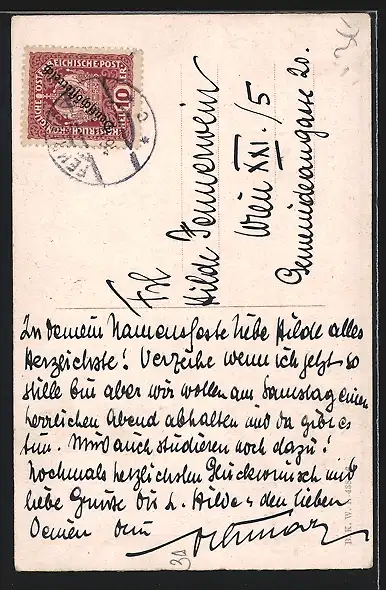 10
Frl
Hilde Jennerwein
Wien XXI./5
Gemeindeaugasse 20.
Zu Deinem Namensfeste liebe Hilde alles
Herzlichste! Verzeihe wenn ich jetzt so
stille bin aber wir wollen am Samstag einen
herrlichen Abend abhalten und da gibt es
tun. Muß auch studieren noch dazu!
Nochmals herzlichsten Glückwunsch und
liebe Grüße Dir l. Hilde u. den lieben
Deinen Dein